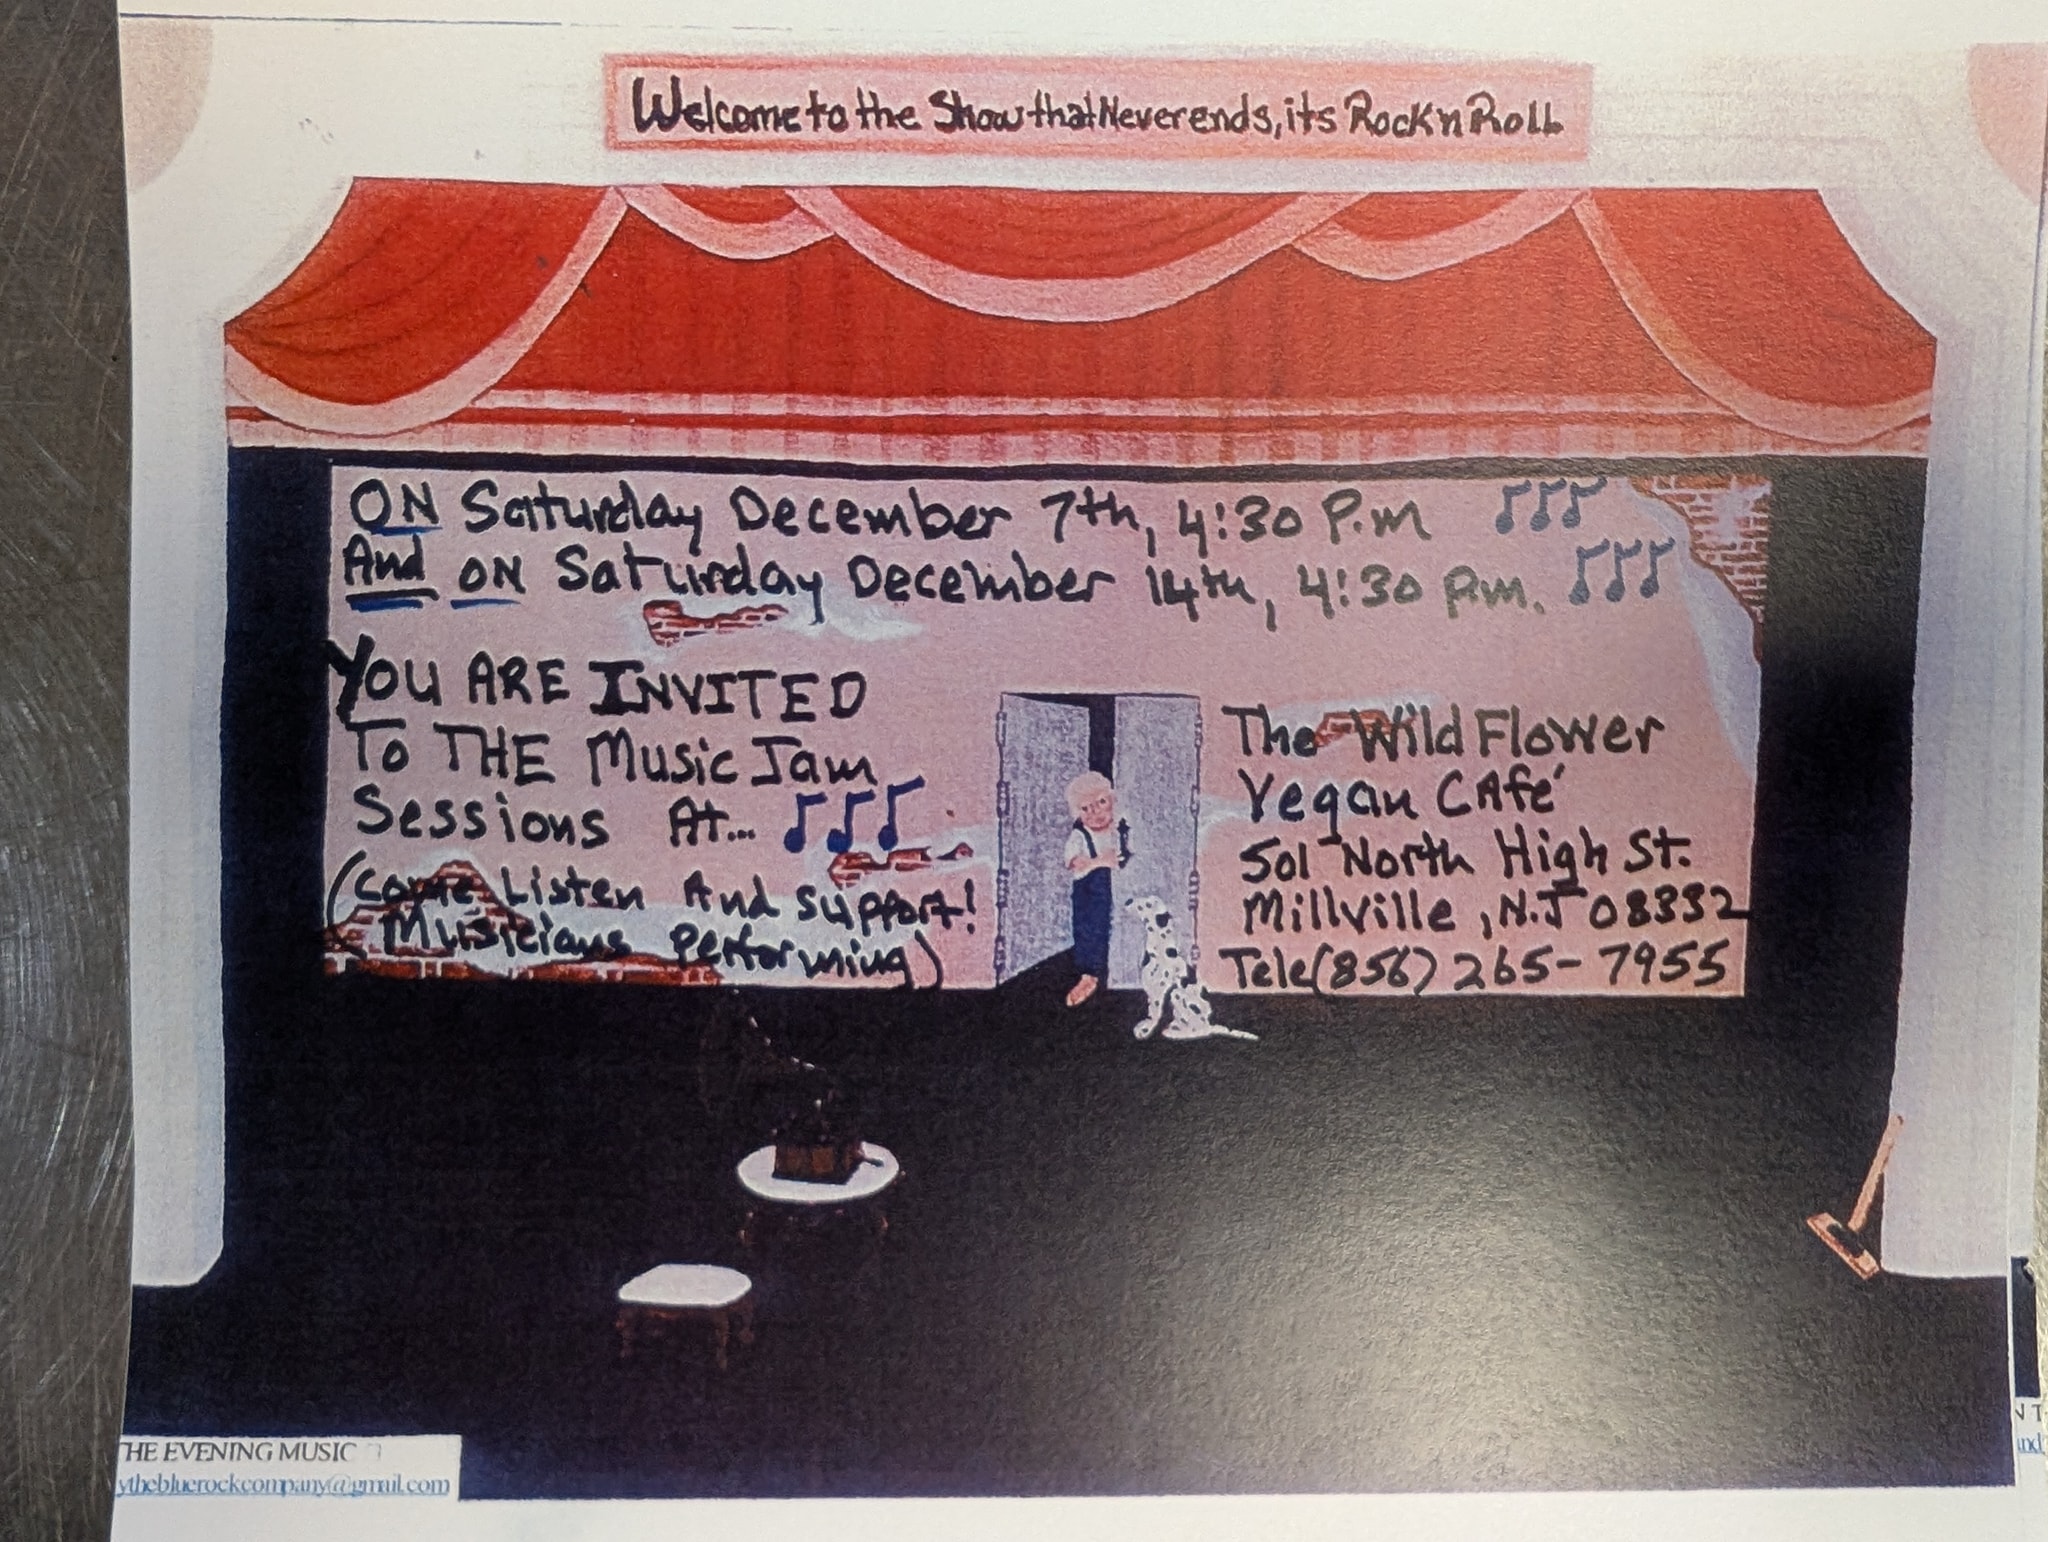 Welcome to the Show that Never ends, its Rock n Roll
ON Saturday December 7th, 4:30 P.m
And ON Saturday December 14th, 4:30 P.m.
YOU ARE INVITED
To THE Music Jam
Sessions At...
(Come Listen And Support!
Musicians Performing)
The Wild Flower
Vegan CAfé
501 North High St.
Millville, N.J 08332
Tele(856) 265-7955
HE EVENING MUSIC
ythebluerockcompany@gmail.com